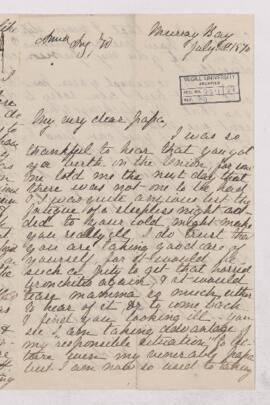 Anna
July, 70
Murray Bay
July 1870
McGILL UNIVERSITY
ARCHIVES
ACC. NO.
REF.
My very dear papa,
I was so
thankful to hear that you got
a berth in the Union, for
me told me the next day that
there was not one to be had
I was quite anxious lest the
fatigue of a sleepless night ad-
ded to your cold, might make
you really ill. I do trust that
you are taking good care of
yourself, for it would be
such a pity to get that horrid
bronchitis again, & it would
tease mamma so much either
to hear of it, or to come back
& find you looking ill - you
see I am taking advantage of
my responsible situation, to lec-
ture even my venerable papa
but I am now so used to taking